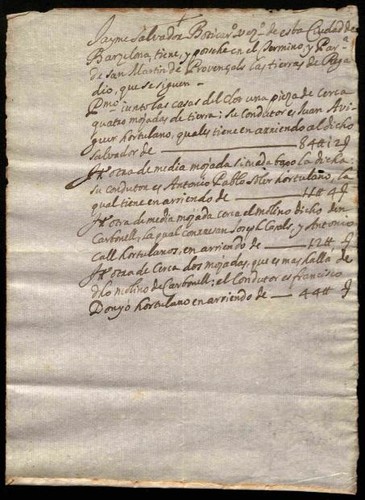 Jayme Salvador Boticar.º vez.º de esta Ciudad de
Barzelona, tiene, y posehe en el Termino, y Par.ª
de San Martin de Provençals las tierras de Rega
dio, que se siguen
Pmo. junto las casas del Clos una pieza de cerca
quatro mojadas de tierra; su Condutor es Juan Avi
hortolano, tiene en arriendo al dicho
Salvador de — 84 12
Itt. otra de media mojada situada bajo la dicha.
su condutor es Antonio Pablo Soler hortolano, la
qual tiene en arriendo de — 4
Itt. otra de media mojada cerca el molino dicho den
Carbonell, la qual son y Antonio
Call hortolanos, en arriendo de — 12
Itt. otra de Cerca dos mojadas, que es mas halla de
dho molino de Carbonell; el Condutor es francisco
Donyó hortolano en arriendo de — 44